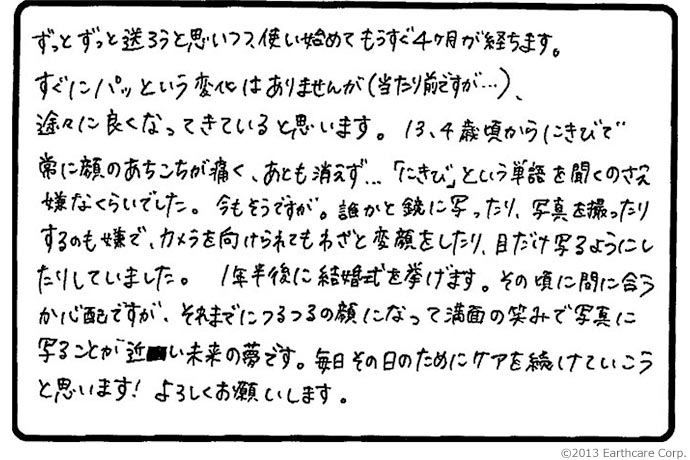 ずっとずっと送ろうと思いつつ、使い始めてもうすぐ4ヶ月が経ちます。
すぐにパッという変化はありませんが(当たり前ですが…)、
途々に良くなってきていると思います。 13、4歳頃からにきびで
常に顔のあちこちが痛く、あとも消えず…「にきび」という単語を聞くのさえ
嫌なくらいでした。 今もそうですが。誰かと鏡に写ったり、写真を撮ったり
するのも嫌で、カメラを向けられてもわざと変顔をしたり、目だけ写るようにし
たりしていました。 1年半後に結婚式を挙げます。その頃に間に合う
か心配ですが、それまでにつるつるの顔になって満面の笑みで写真に
写ることが近い未来の夢です。毎日その日のためにケアを続けていこう
と思います! よろしくお願いします。
©2013 Earthcare Corp.